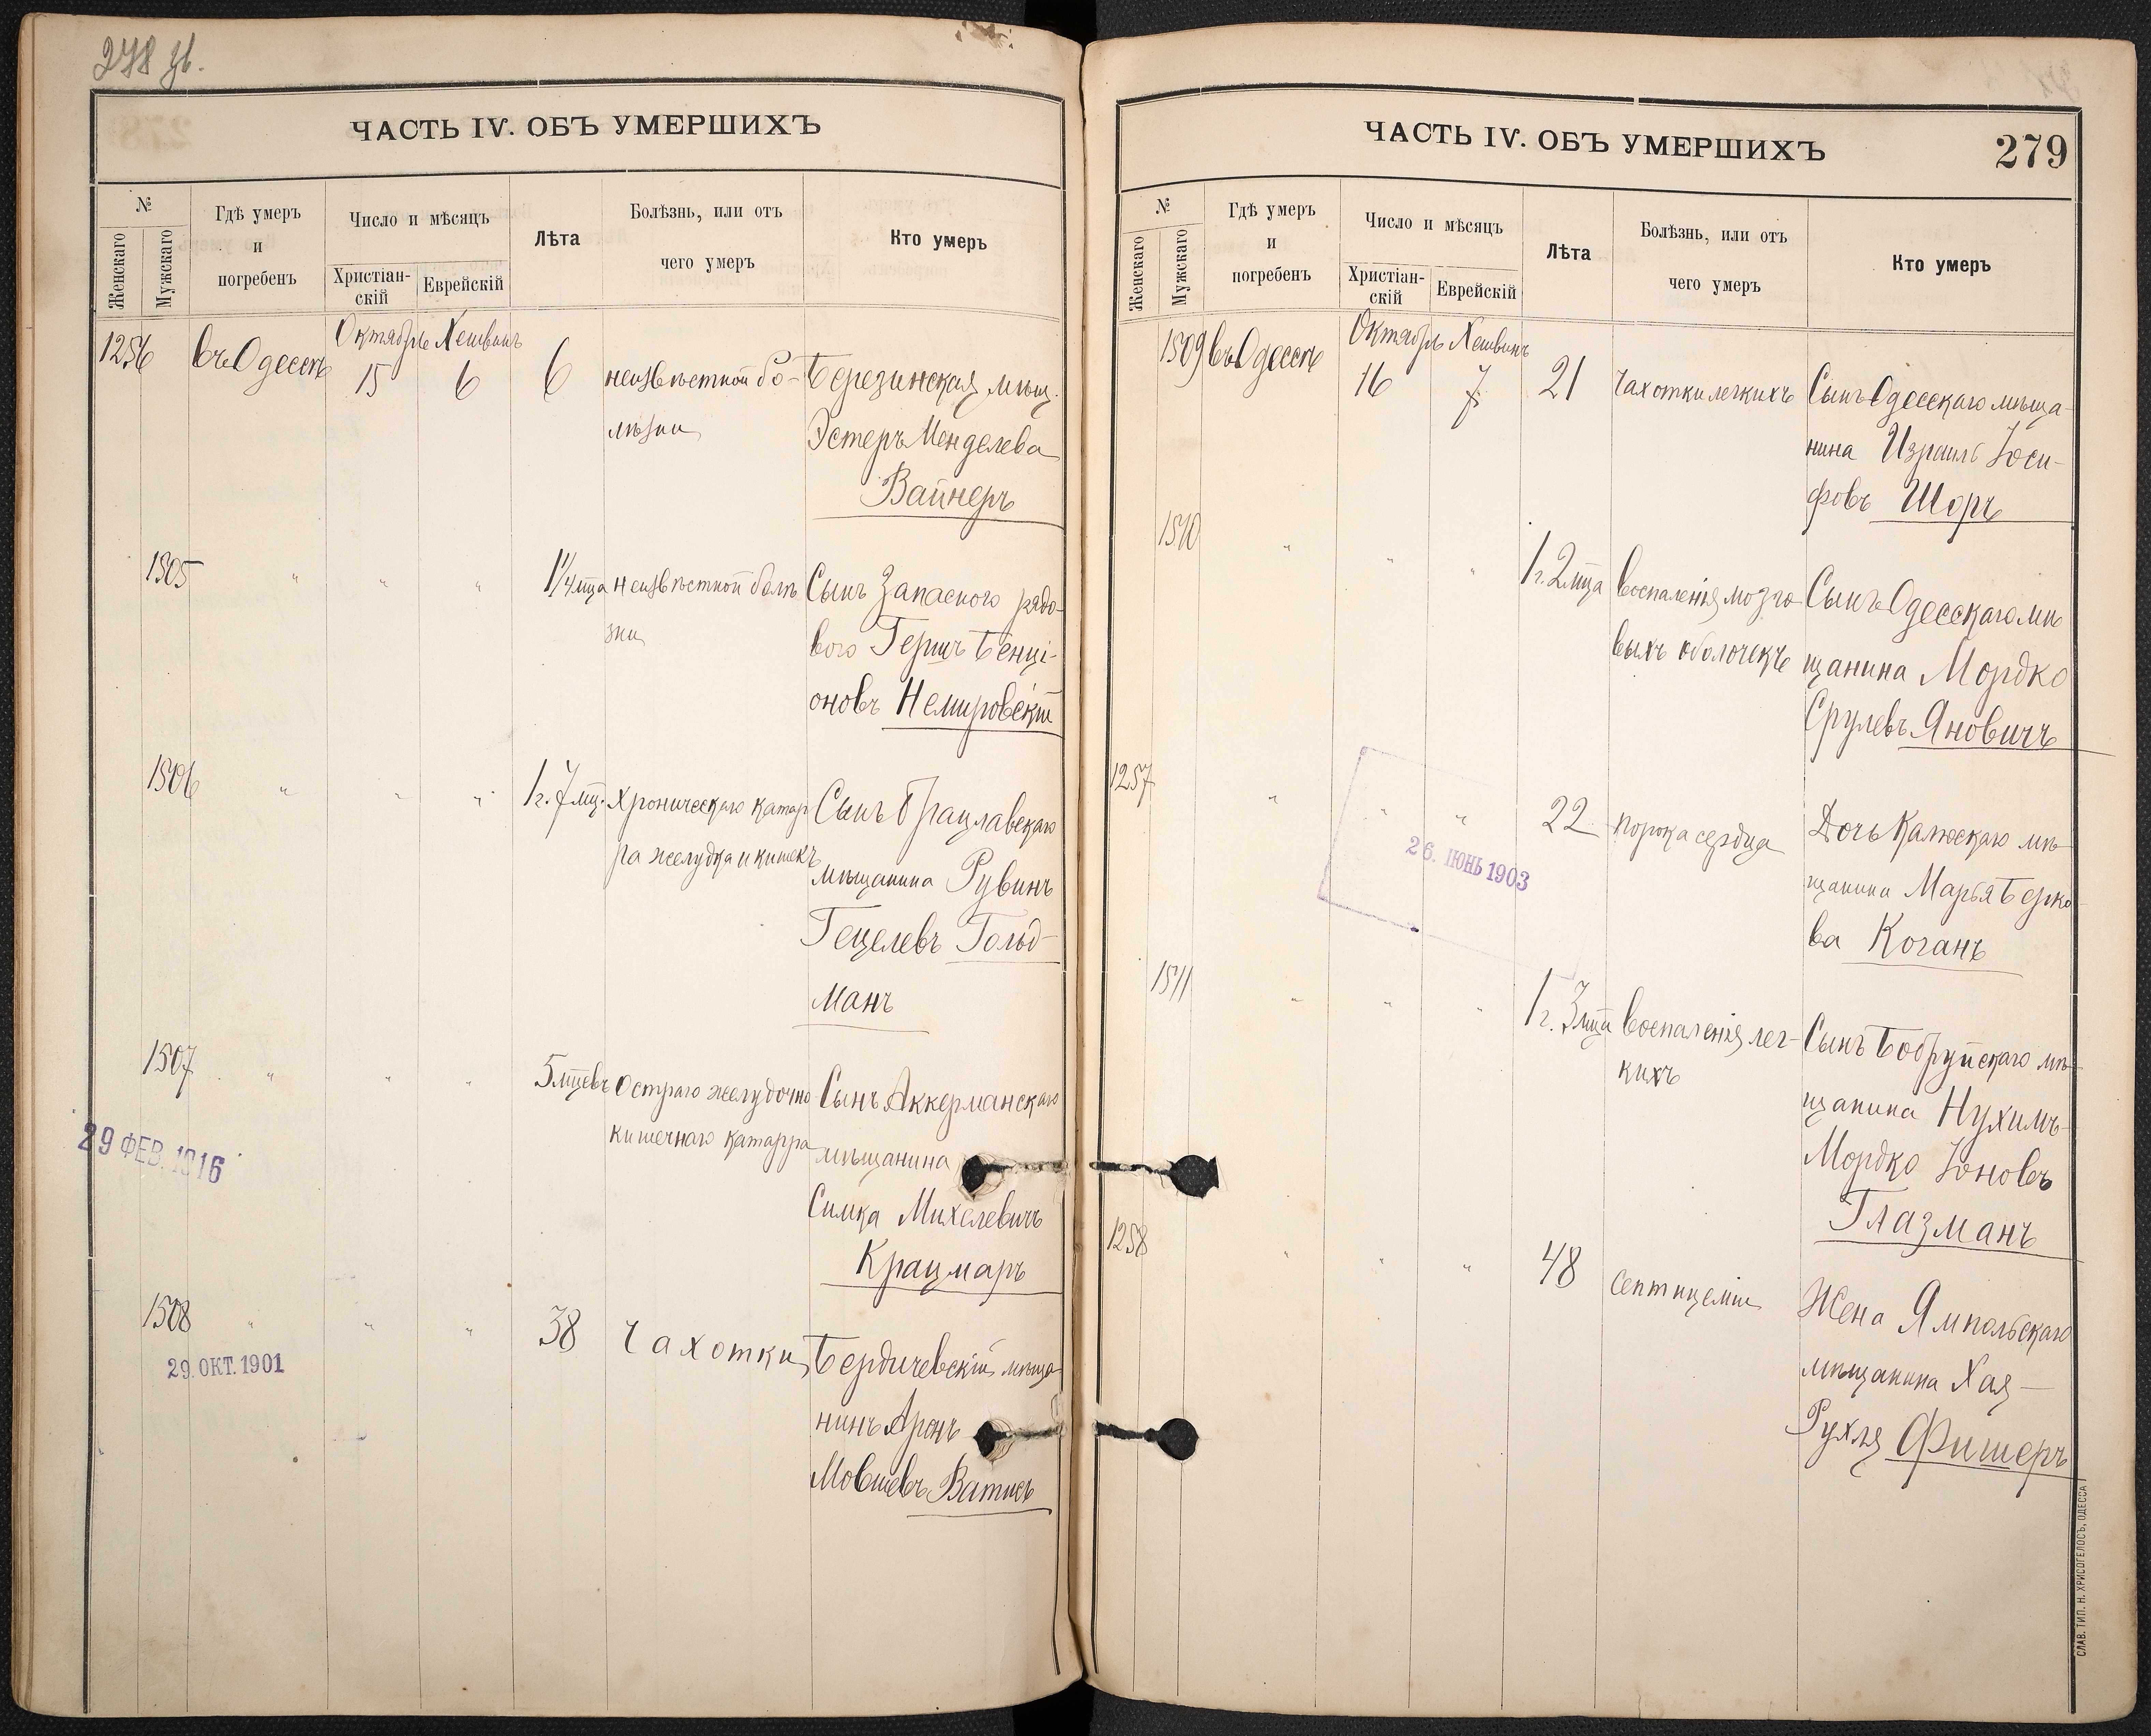 278 об.
ЧАСТЬ IV. ОБЪ УМЕРШИХЪ
№
Женскаго
Мужскаго
Гдѣ умеръ
и
погребенъ
Число и мѣсяцъ
Христіан-
скій
Еврейскій
Лѣта
Болѣзнь, или отъ
чего умеръ
Кто умеръ
1256 въ Одессѣ Октябрь 15 Хешванъ 6 6 неизвѣстной бо- Березинская мѣщ.
лѣзни Эстеръ Менделева
Вайнеръ
1505 " " " 1¼ мца неизвѣстной болѣ Сынъ Запасного рядо-
зни вого Гершъ Бенці-
оновъ Немировскій
1506 " " " 1 г. 7 мц. Хроническаго катар Сынъ Брацлавскаго
ра желудка и кишекъ мѣщанина Рувинъ
Гецелевъ Гольд-
манъ
1507 " " " 5 мцевъ Остраго желудочно Сынъ Аккерманскаго
кишечнаго катарра мѣщанина
29 ФЕВ. 1916
Симха Михелевичъ
Крацмаръ
1508 " " " 38 Чахотки Бердичевскій мѣща
29. ОКТ. 1901
нинъ Аронъ
Мовшевъ Ватисъ
ЧАСТЬ IV. ОБЪ УМЕРШИХЪ
279
№
Женскаго
Мужскаго
Гдѣ умеръ
и
погребенъ
Число и мѣсяцъ
Христіан-
скій
Еврейскій
Лѣта
Болѣзнь, или отъ
чего умеръ
Кто умеръ
1509 въ Одессѣ Октябрь 16 Хешванъ 7 21 Чахотки легкихъ Сынъ Одесскаго мѣща-
нина Израиль Іоси-
фовъ Шоръ
1510 " " " 1 г. 2 мца Воспаленія мозго- Сынъ Одесскаго мѣ
выхъ оболочекъ щанина Мордко
Срулевъ Яновичъ
1257 " " " 22 порока сердца Дочь Калюсскаго мѣ-
26. ІЮНЬ 1903
щанина Марья Берко-
ва Коганъ
1511 " " " 1 г. 3 мца Воспаленія лег- Сынъ Бобруйскаго мѣ-
кихъ щанина Нухимъ-
Мордко Іоновъ
Глазманъ
1258 " " " 48 Септицеміи Жена Ямпольскаго
мѣщанина Хая-
Рухля Фишеръ
СЛАВ. ТИП. Н. ХРИСОГЕЛОСЪ, ОДЕССА